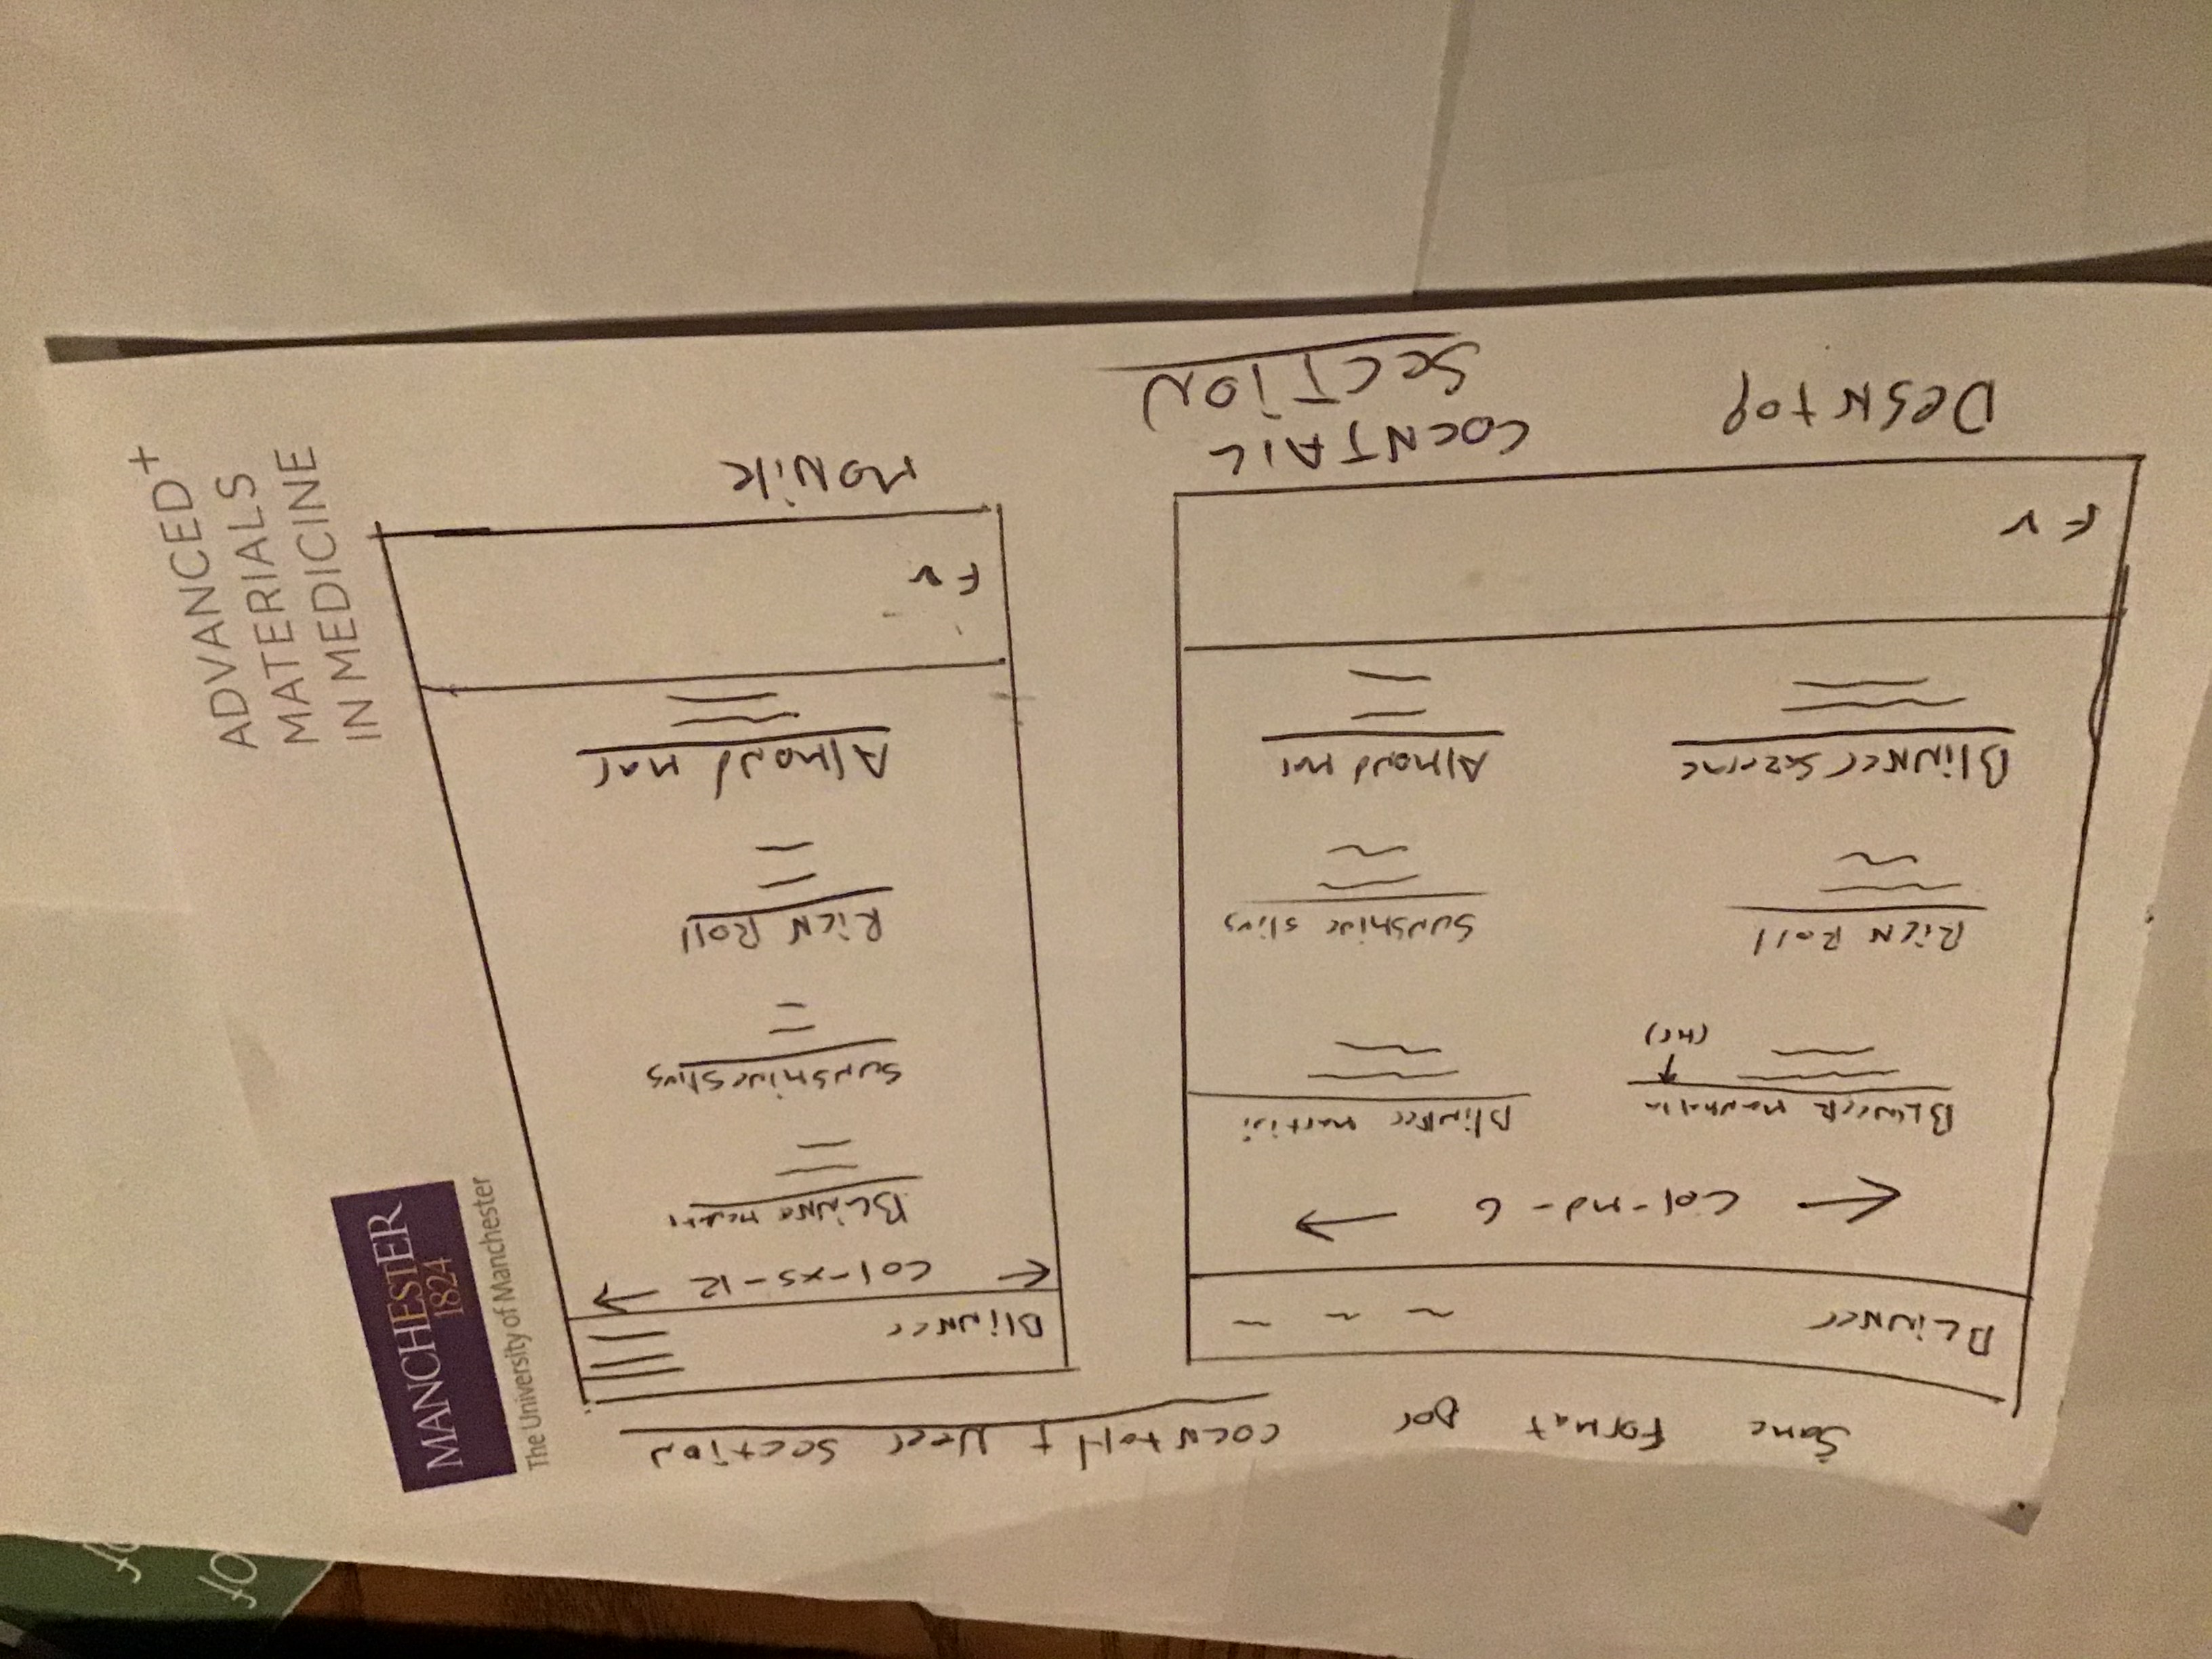 Same Format for cocktail + Beer section
Blinker
← Col-md-6 →
Blinker Manhattan
Blinker martini
(Hr)
Rick Roll
Sunshine sling
Blinker Sazerac
Almond Mar
F
Desktop
COCKTAIL
SECTION
Blinker
← Col-xs-12 →
Blinker
Sunshine sling
Rick Roll
Almond mar
F
Mobile
MANCHESTER
1824
The University of Manchester
ADVANCED+
MATERIALS
IN MEDICINE